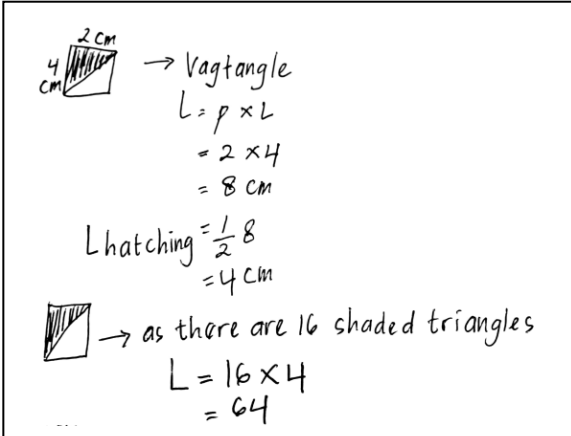 2 cm
4 cm
→ Vagtangle
L = p × L
= 2 × 4
= 8 cm
L hatching = 1/2 8
= 4 cm
→ as there are 16 shaded triangles
L = 16 × 4
= 64